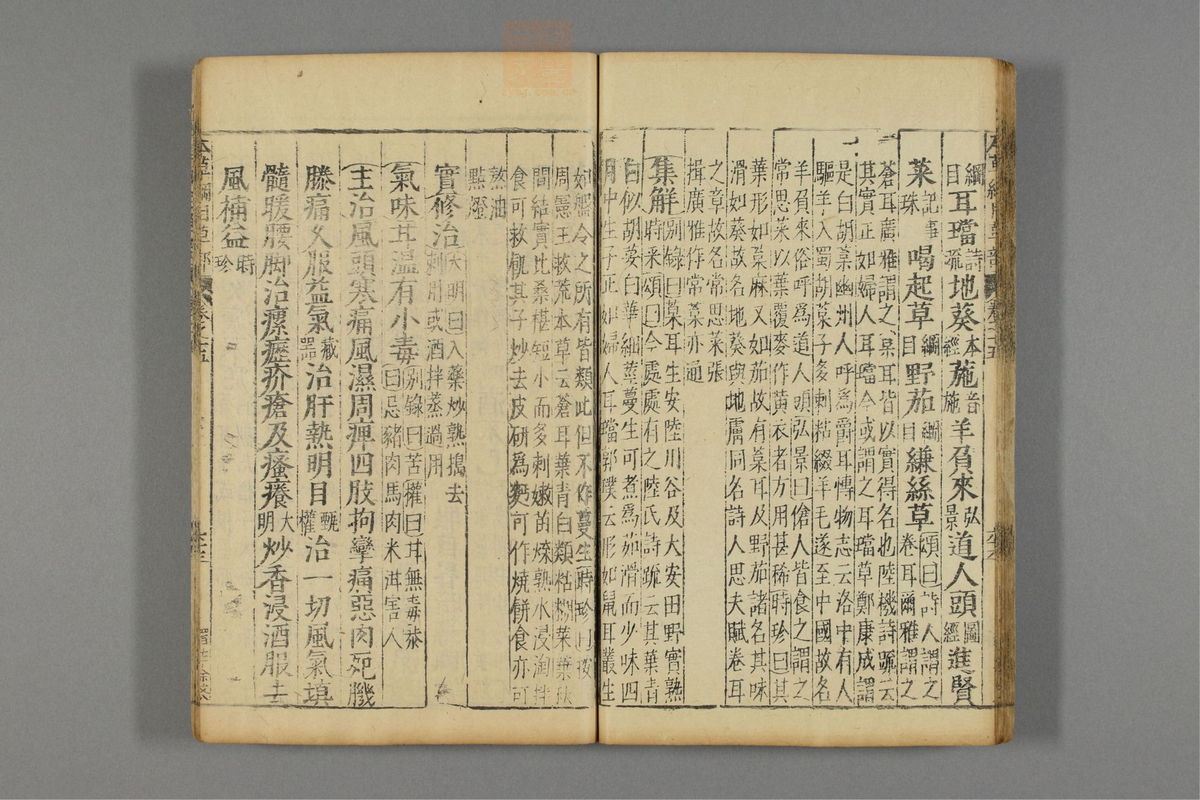 綱目耳璫詩疏地葵本經葹音施羊負來弘景道人頭圖經進賢
菜記事珠喝起草綱目野茄綱目縑絲草頌曰詩人謂之卷耳爾雅謂之
蒼耳廣雅謂之葈耳皆以實得名也陸機詩疏云
其實正如婦人耳璫今或謂之耳璫草鄭康成謂
是白胡荽幽州人呼爲爵耳博物志云洛中有人
驅羊入蜀胡葈子多刺粘綴羊毛遂至中國故名
羊負來俗呼爲道人頭弘景曰傖人皆食之謂之
常思菜以葉覆麥作黃衣者方用甚稀時珍曰其
葉形如葈麻又如茄故有葈耳及野茄諸名其味
滑如葵故名地葵與地膚同名詩人思夫賦卷耳
之章故名常思菜張
揖廣雅作常葈亦通
集解別錄曰葈耳生安陸川谷及大安田野實熟
時采頌曰今處處有之陸氏詩疏云其葉青
白似胡荽白華細莖蔓生可煮爲茹滑而少味四
月中生子正如婦人耳璫郭璞云形如鼠耳叢生
如盤今之所有皆類此但不作蔓生時珍曰按
周憲王救荒本草云蒼耳葉青白類粘糊菜葉秋
間結實比桑椹短小而多刺嫩苗煠熟水浸淘拌
食可救飢其子炒去皮研爲麪可作燒餅食亦可
熬油
點燈
實修治大明曰入藥炒熟搗去刺用或酒拌蒸過用
氣味甘溫有小毒別錄曰苦權曰甘無毒恭曰忌豬肉馬肉米泔害人
主治風頭寒痛風濕周痺四肢拘攣痛惡肉死肌
膝痛久服益氣藏器治肝熱明目甄權治一切風氣填
髓暖腰脚治瘰癧疥瘡及瘙癢大明炒香浸酒服去
風補益時珍